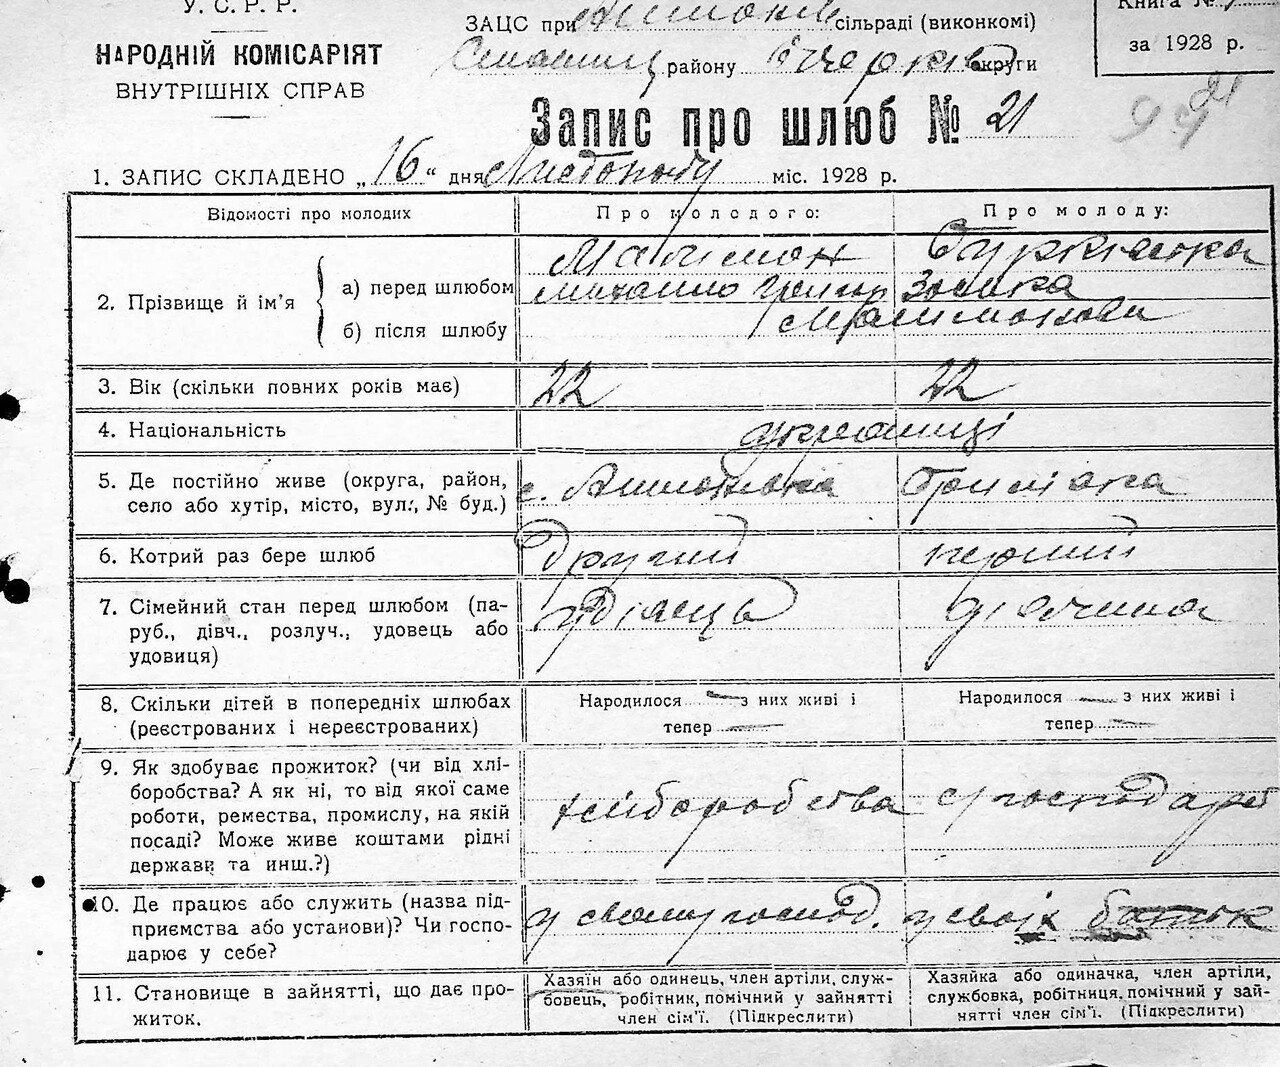 У. С. Р. Р.
НАРОДНІЙ КОМІСАРІЯТ
ВНУТРІШНІХ СПРАВ
ЗАЦС при сільраді (виконкомі)
району округи
Книга №
за 1928 р.
Запис про шлюб № 21
1. ЗАПИС СКЛАДЕНО „16“ дня Листопаду міс. 1928 р.
Відомості про молодих
Про молодого:
Про молоду:
2. Прізвище й ім'я
а) перед шлюбом
б) після шлюбу
Михайло
3. Вік (скільки повних років має)
22
22
4. Національність
українці
5. Де постійно живе (округа, район,
село або хутір, місто, вул., № буд.)
с.
6. Котрий раз бере шлюб
другий
перший
7. Сімейний стан перед шлюбом (па-
руб., дівч., розлуч., удовець або
удовиця)
удівець
дівчина
8. Скільки дітей в попередніх шлюбах
(реєстрованих і нереєстрованих)
Народилося — з них живі і
тепер —
Народилося — з них живі і
тепер —
9. Як здобуває прожиток? (чи від хлі-
боробства? А як ні, то від якої саме
роботи, ремества, промислу, на якій
посаді? Може живе коштами рідні
держави та инш.?)
хліборобства
10. Де працює або служить (назва під-
приємства або установи)? Чи госпо-
дарює у себе?
у свому господ.
у своїх батьк
11. Становище в зайнятті, що дає про-
житок.
Хазяїн або одинець, член артілі, служ-
бовець, робітник, помічний у зайнятті
член сім'ї. (Підкреслити)
Хазяйка або одиначка, член артілі,
службовка, робітниця, помічний у зай-
нятті член сім'ї. (Підкреслити)